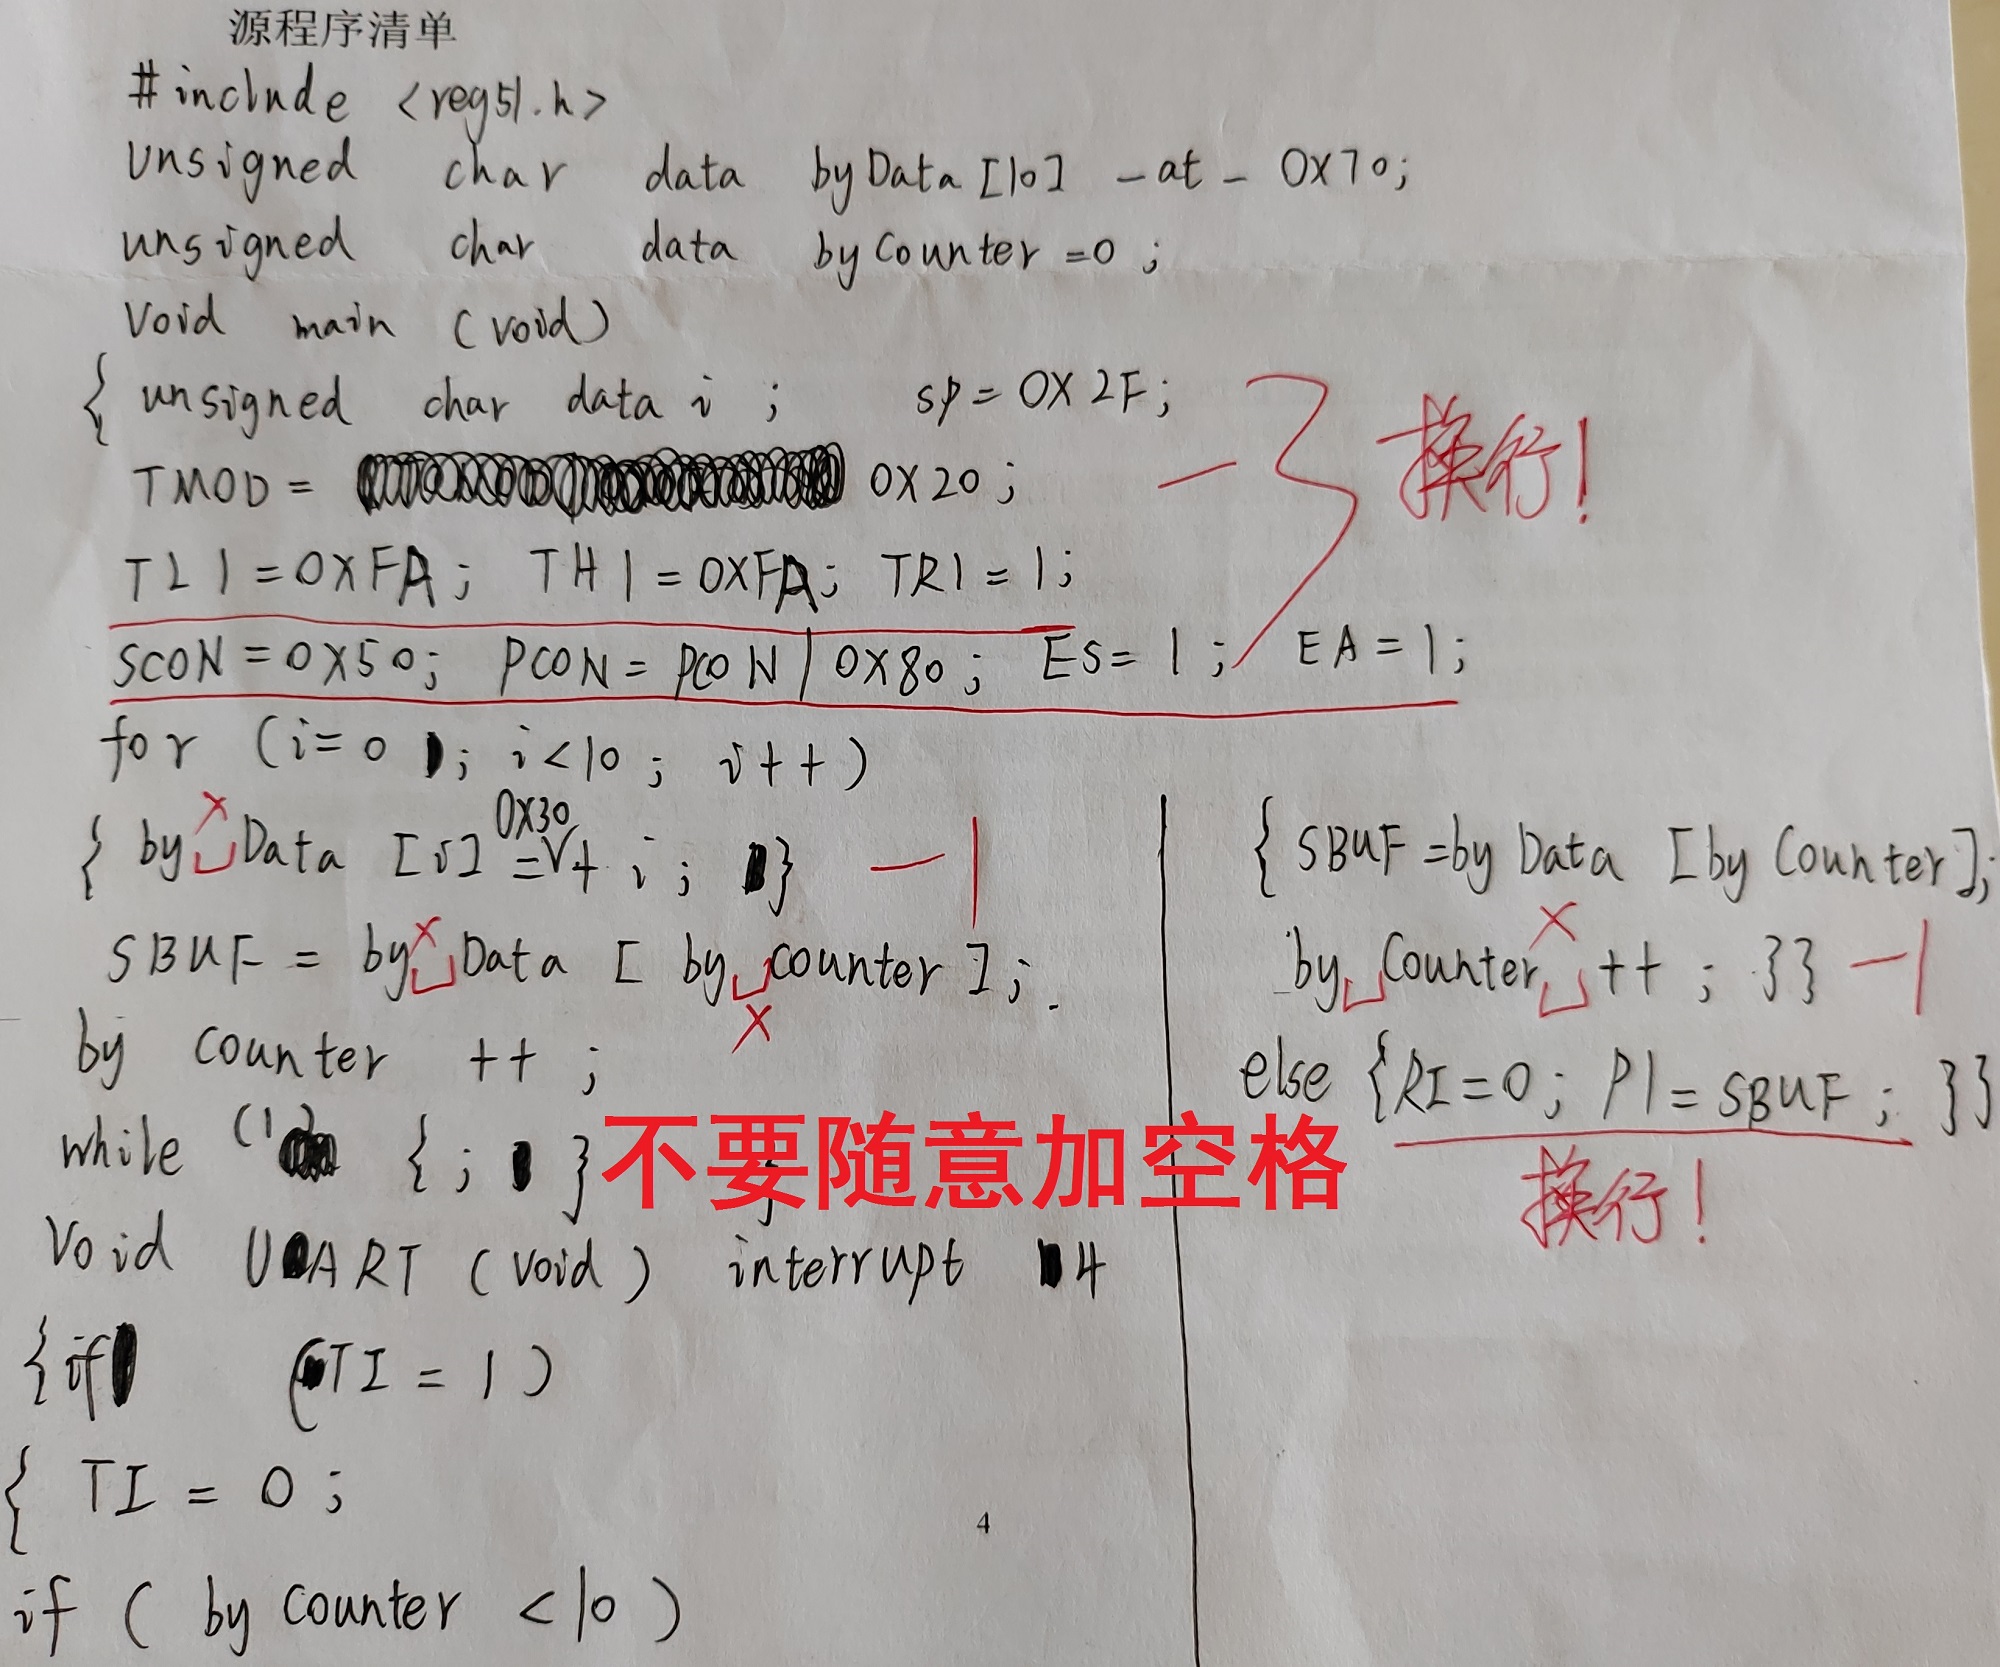 源程序清单
#include <reg51.h>
unsigned char data byData[10] _at_ 0X70;
unsigned char data byCounter=0;
void main (void)
{ unsigned char data i ; sp=0X2F;
换行!
TMOD = 0X20;
-1
TL1=0XFA; TH1=0XFA; TR1=1;
SCON=0X50; PCON=PCON|0X80; ES=1; EA=1;
for (i=0; i<10; i++)
{ by Data [i] = 0X30 + i; }
-1
SBUF = by Data [ by counter ];
by counter ++ ;
while (1) { ; }
}
不要随意加空格
void UART (void) interrupt 4
{if (TI = 1)
{ TI = 0 ;
if ( by counter <10 )
{ SBUF=by Data [by Counter];
by Counter ++ ; }}
-1
else {RI=0; P1=SBUF; }}
换行!
4